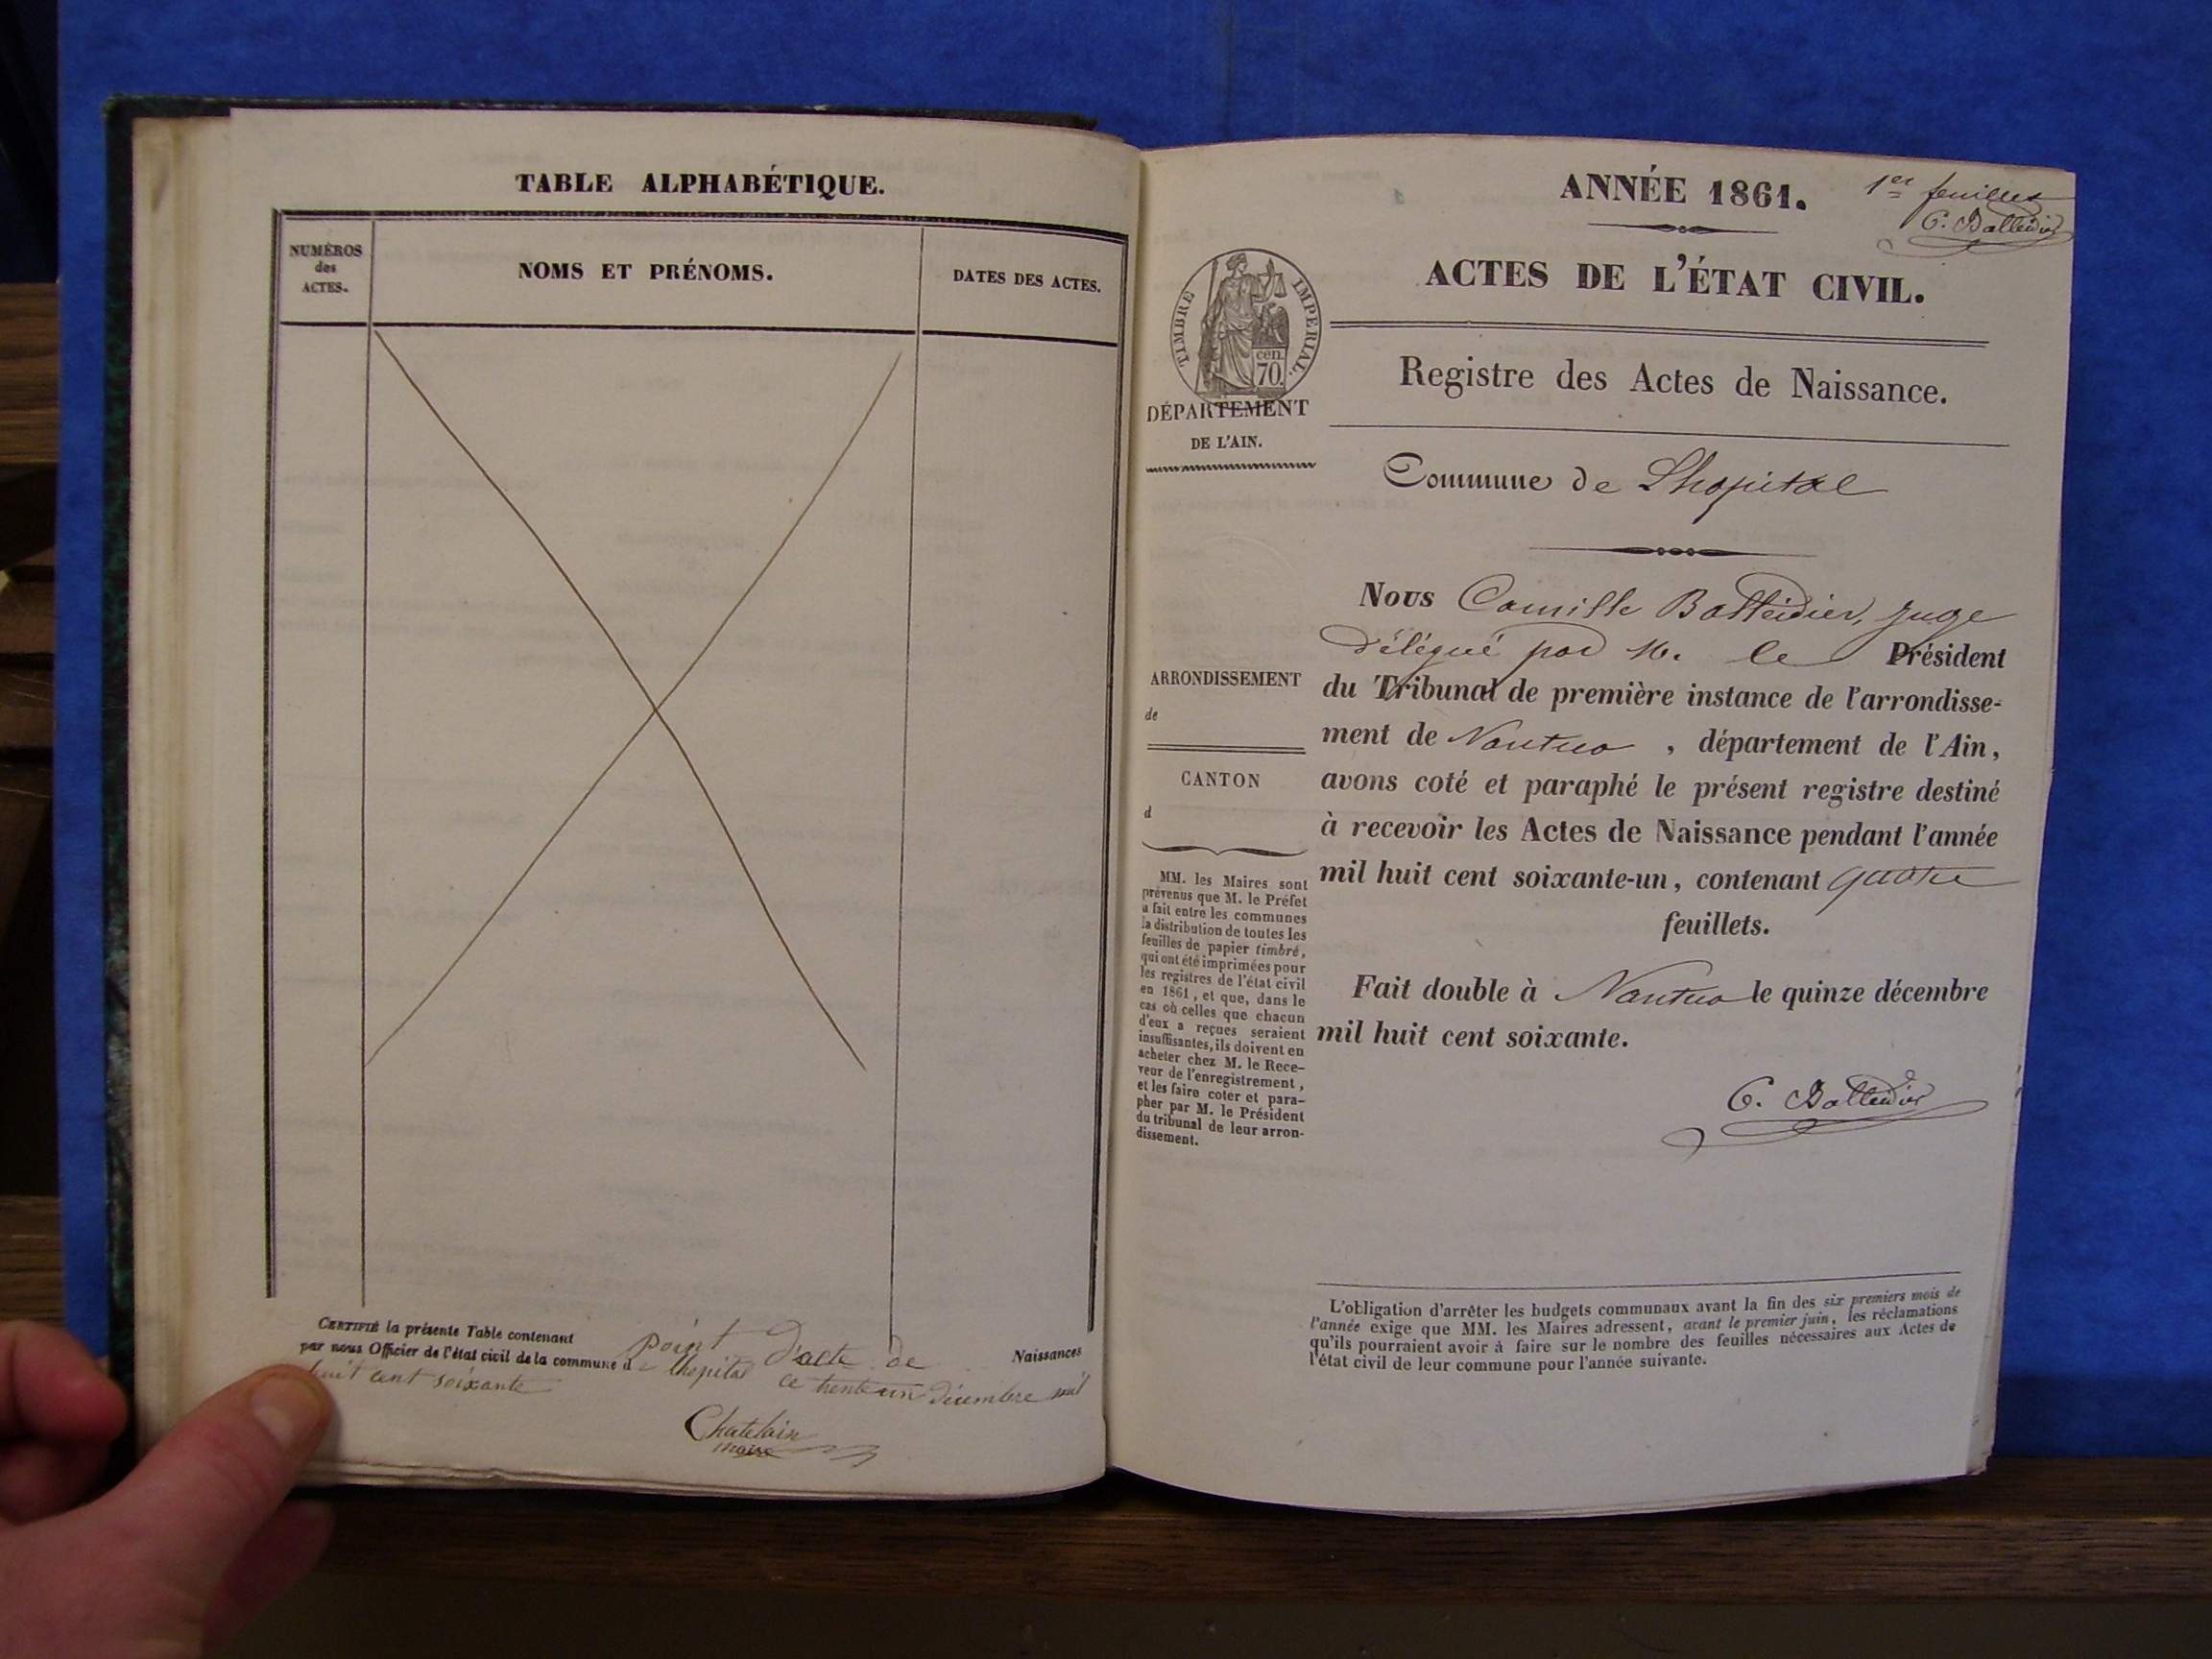 TABLE ALPHABÉTIQUE.
NUMÉROS
des
ACTES.
NOMS ET PRÉNOMS.
DATES DES ACTES.
CERTIFIÉ la présente Table contenant point d'acte de Naissances
par nous Officier de l'état civil de la commune de lhopital ce trente un décembre mil
huit cent soixante
Chatelain
maire
ANNÉE 1861.
1er feuillet
C.
ACTES DE L'ÉTAT CIVIL.
TIMBRE IMPÉRIAL.
cen.
70.
DÉPARTEMENT
DE L'AIN.
Registre des Actes de Naissance.
Commune de Lhopital
ARRONDISSEMENT
de
CANTON
d
MM. les Maires sont
prévenus que M. le Préfet
a fait entre les communes
la distribution de toutes les
feuilles de papier timbré,
qui ont été imprimées pour
les registres de l'état civil
en 1861, et que, dans le
cas où celles que chacun
d'eux a reçues seraient
insuffisantes, ils doivent en
acheter chez M. le Rece-
veur de l'enregistrement,
et les faire coter et para-
pher par M. le Président
du tribunal de leur arron-
dissement.
Nous Camille Balleidier, juge
délégué par M. le Président
du Tribunal de première instance de l'arrondisse-
ment de Nantua, département de l'Ain,
avons coté et paraphé le présent registre destiné
à recevoir les Actes de Naissance pendant l'année
mil huit cent soixante-un, contenant quatre
feuillets.
Fait double à Nantua le quinze décembre
mil huit cent soixante.
C. Balleidier
L'obligation d'arrêter les budgets communaux avant la fin des six premiers mois de
l'année exige que MM. les Maires adressent, avant le premier juin, les réclamations
qu'ils pourraient avoir à faire sur le nombre des feuilles nécessaires aux Actes de
l'état civil de leur commune pour l'année suivante.